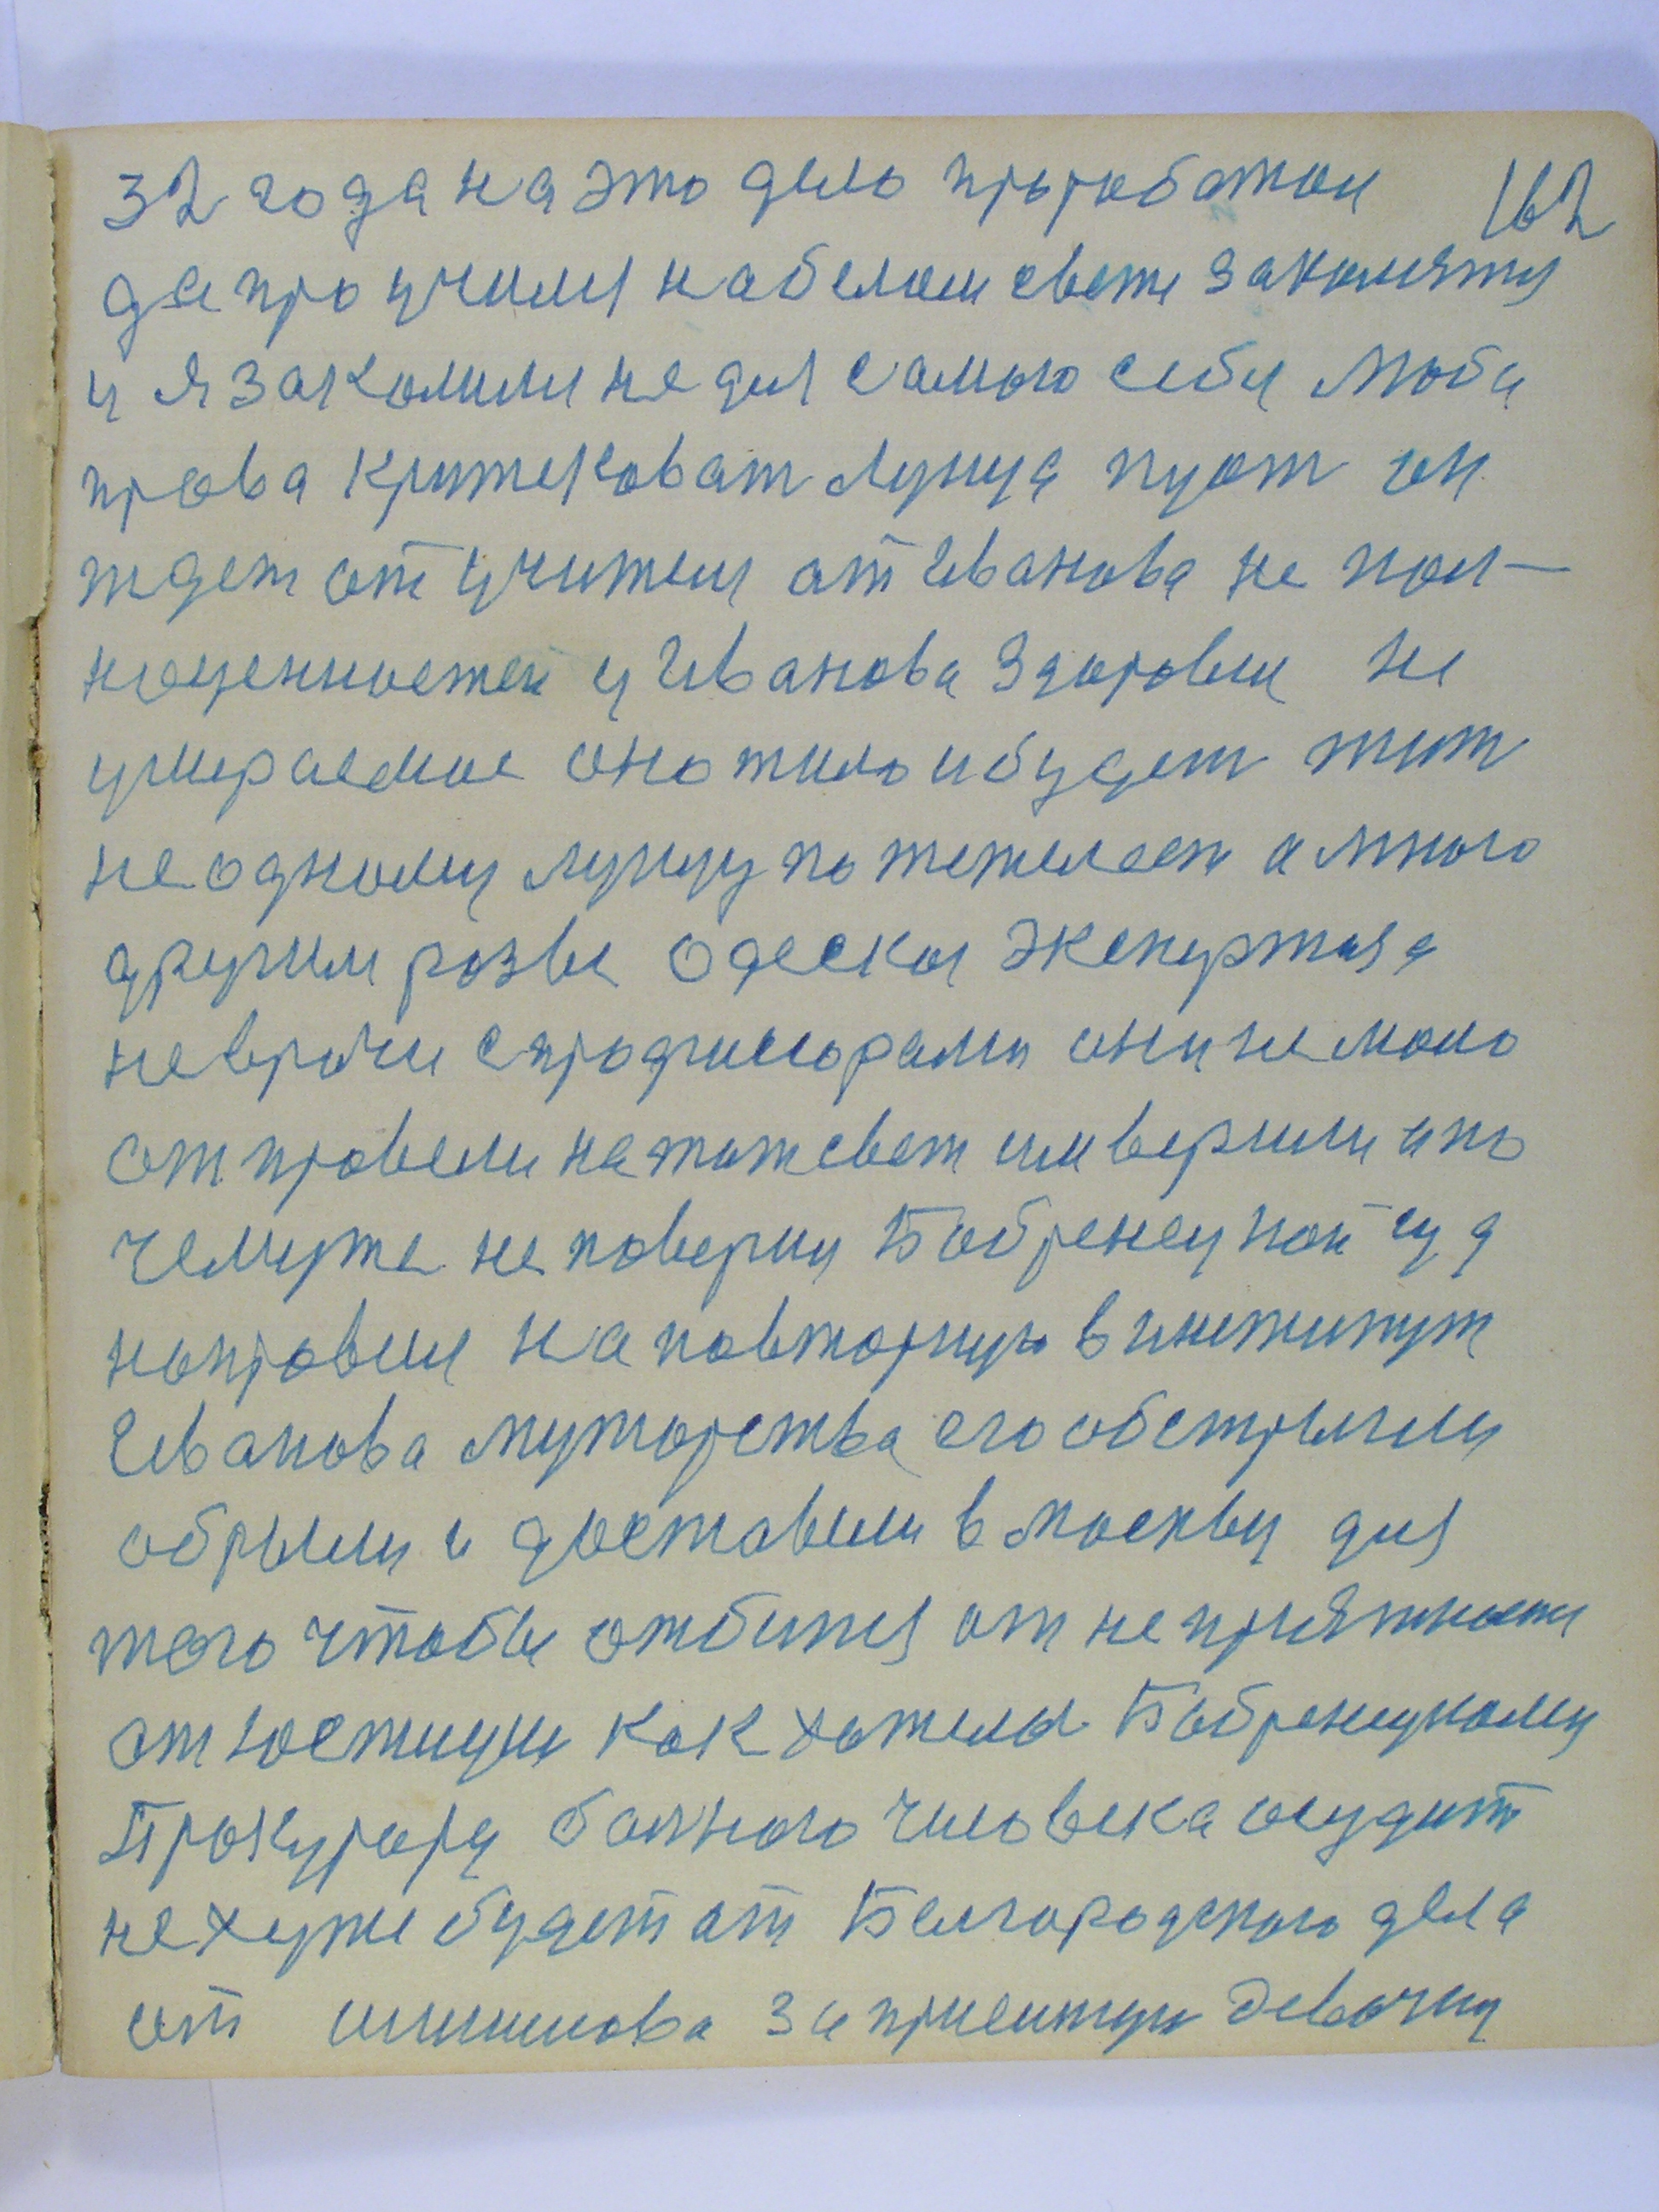 32 года на это дело проработал 162
да проучился на белом свете законятся
и я закомился не для самого себя моба
права критековат лунца пуст он
ждет от учителя от Иванова не пол-
ноценностей у Иванова Здоровия не
умираемое оно жило и будет жит
не одному лунцу пожежелает а много
другим розве Одеская Экспертиза
не врачи с профессорами они не мало
отправели на тот свет им верили а по
чемуже не поверил Бобренецкой суд
направил на повторную в институт
Иванова муторства его обстрыгли
обрыли и доставели в москву для
того чтобы отбится от неприятности
от Юстиции как хотелоя Бобренецкому
Прокурору болного человека осудит
не хужи будет от Белгородского дела
от шишинова За приемную девочку